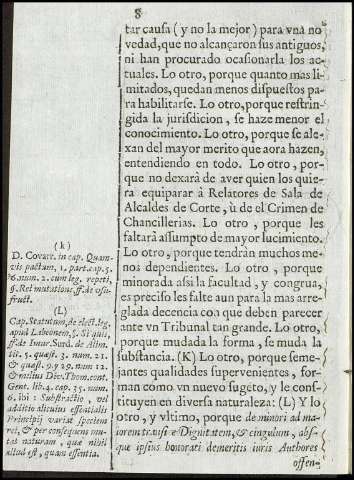 8
tar causa (y no la mejor) para vna no
vedad, que no alcançaron sus antiguos,
ni han procurado ocasionarla los ac-
tuales. Lo otro, porque quanto mas li-
mitados, quedan menos dispuestos pa-
ra habilitarse. Lo otro, porque restrin-
gida la jurisdicion, se haze menor el
conocimiento. Lo otro, porque se ale-
xan del mayor merito que aora hazen,
entendiendo en todo. Lo otro, por-
que no dexarà de aver quien los quie-
ra equiparar à Relatores de Sala de
Alcaldes de Corte, ù de el Crimen de
Chancillerias. Lo otro, porque les
faltarà assumpto de mayor lucimiento.
Lo otro, porque tendràn muchos me-
nos dependientes. Lo otro, porque
minorada assi la facultad, y congrua,
es preciso les falte aun para la mas arre-
glada decencia con que deben parecer
ante vn Tribunal tan grande. Lo otro,
porque mudada la forma, se muda la
substancia. (K) Lo otro, porque seme-
jantes qualidades supervenientes, for-
man como vn nuevo sugeto, y le cons-
tituyen en diversa naturaleza: (L) Y lo
otro, y vltimo, porque de minori ad ma-
iorem transi e Dignitatem, & cingulum, abs-
que ipsius honorati demeritis iuris Authores
offen-
(k)
D. Covarr. in cap. Quam-
vis pactum, 1. part. cap. 5.
num. 2. cum leg. repeti,
§. Rei mutatione, ff. de usu-
fruct.
(L)
Cap. Statutum, de elect. leg.
apud Labeonem, §. Si quis,
ff. de Iniur. Surd. de Alim.
tit. 5. quæst. 3. num. 21.
& quæst. 9. y 29. num. 12.
& melius Div. Thom. cont.
Gent. lib. 4. cap. 35. num.
6, ibi: Substractio, vel
additio alicuius essentialis
Principij variat speciem
rei, & per consequens mu-
tat naturam, quæ nihil
aliud est, quam essentia.